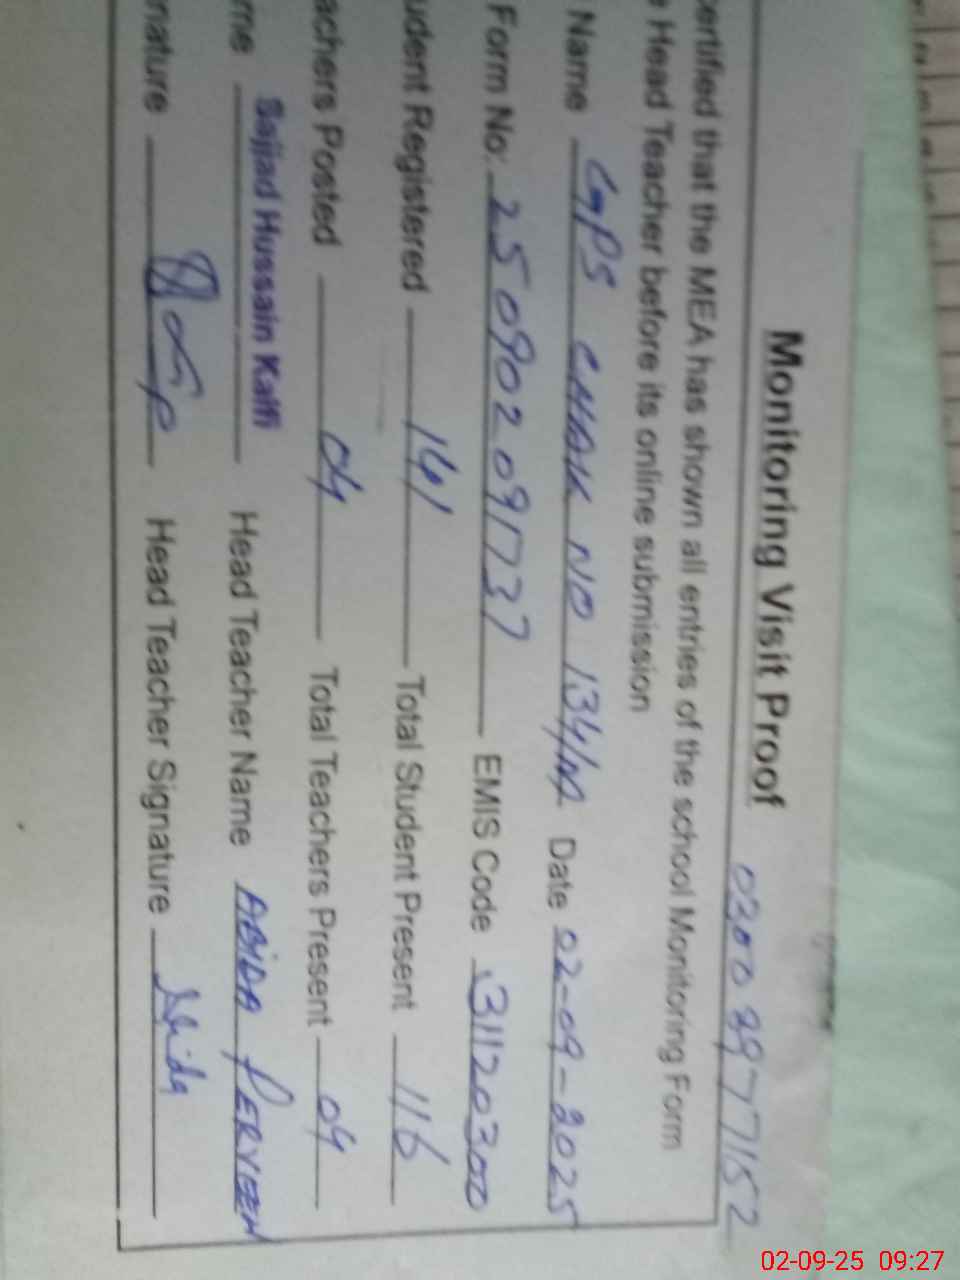 Monitoring Visit Proof 0300 8977152
certified that the MEA has shown all entries of the school Monitoring Form
e Head Teacher before its online submission
Name GPS CHAK NO 134/NP Date 02-09-2025
Form No: 2509020 91737 EMIS Code 31120300
udent Registered 161 Total Student Present 116
achers Posted 04 Total Teachers Present 04
me Sajjad Hussain Kaifi Head Teacher Name ABIDA PERVEEN
nature Head Teacher Signature Abida
02-09-25 09:27